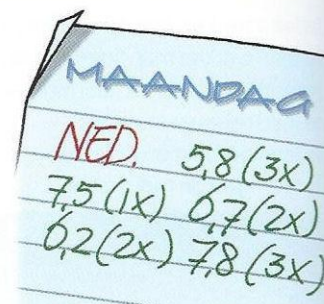 MAANDAG
NED. 5,8 (3x)
7,5 (1x) 6,7 (2x)
6,2 (2x) 7,8 (3x)